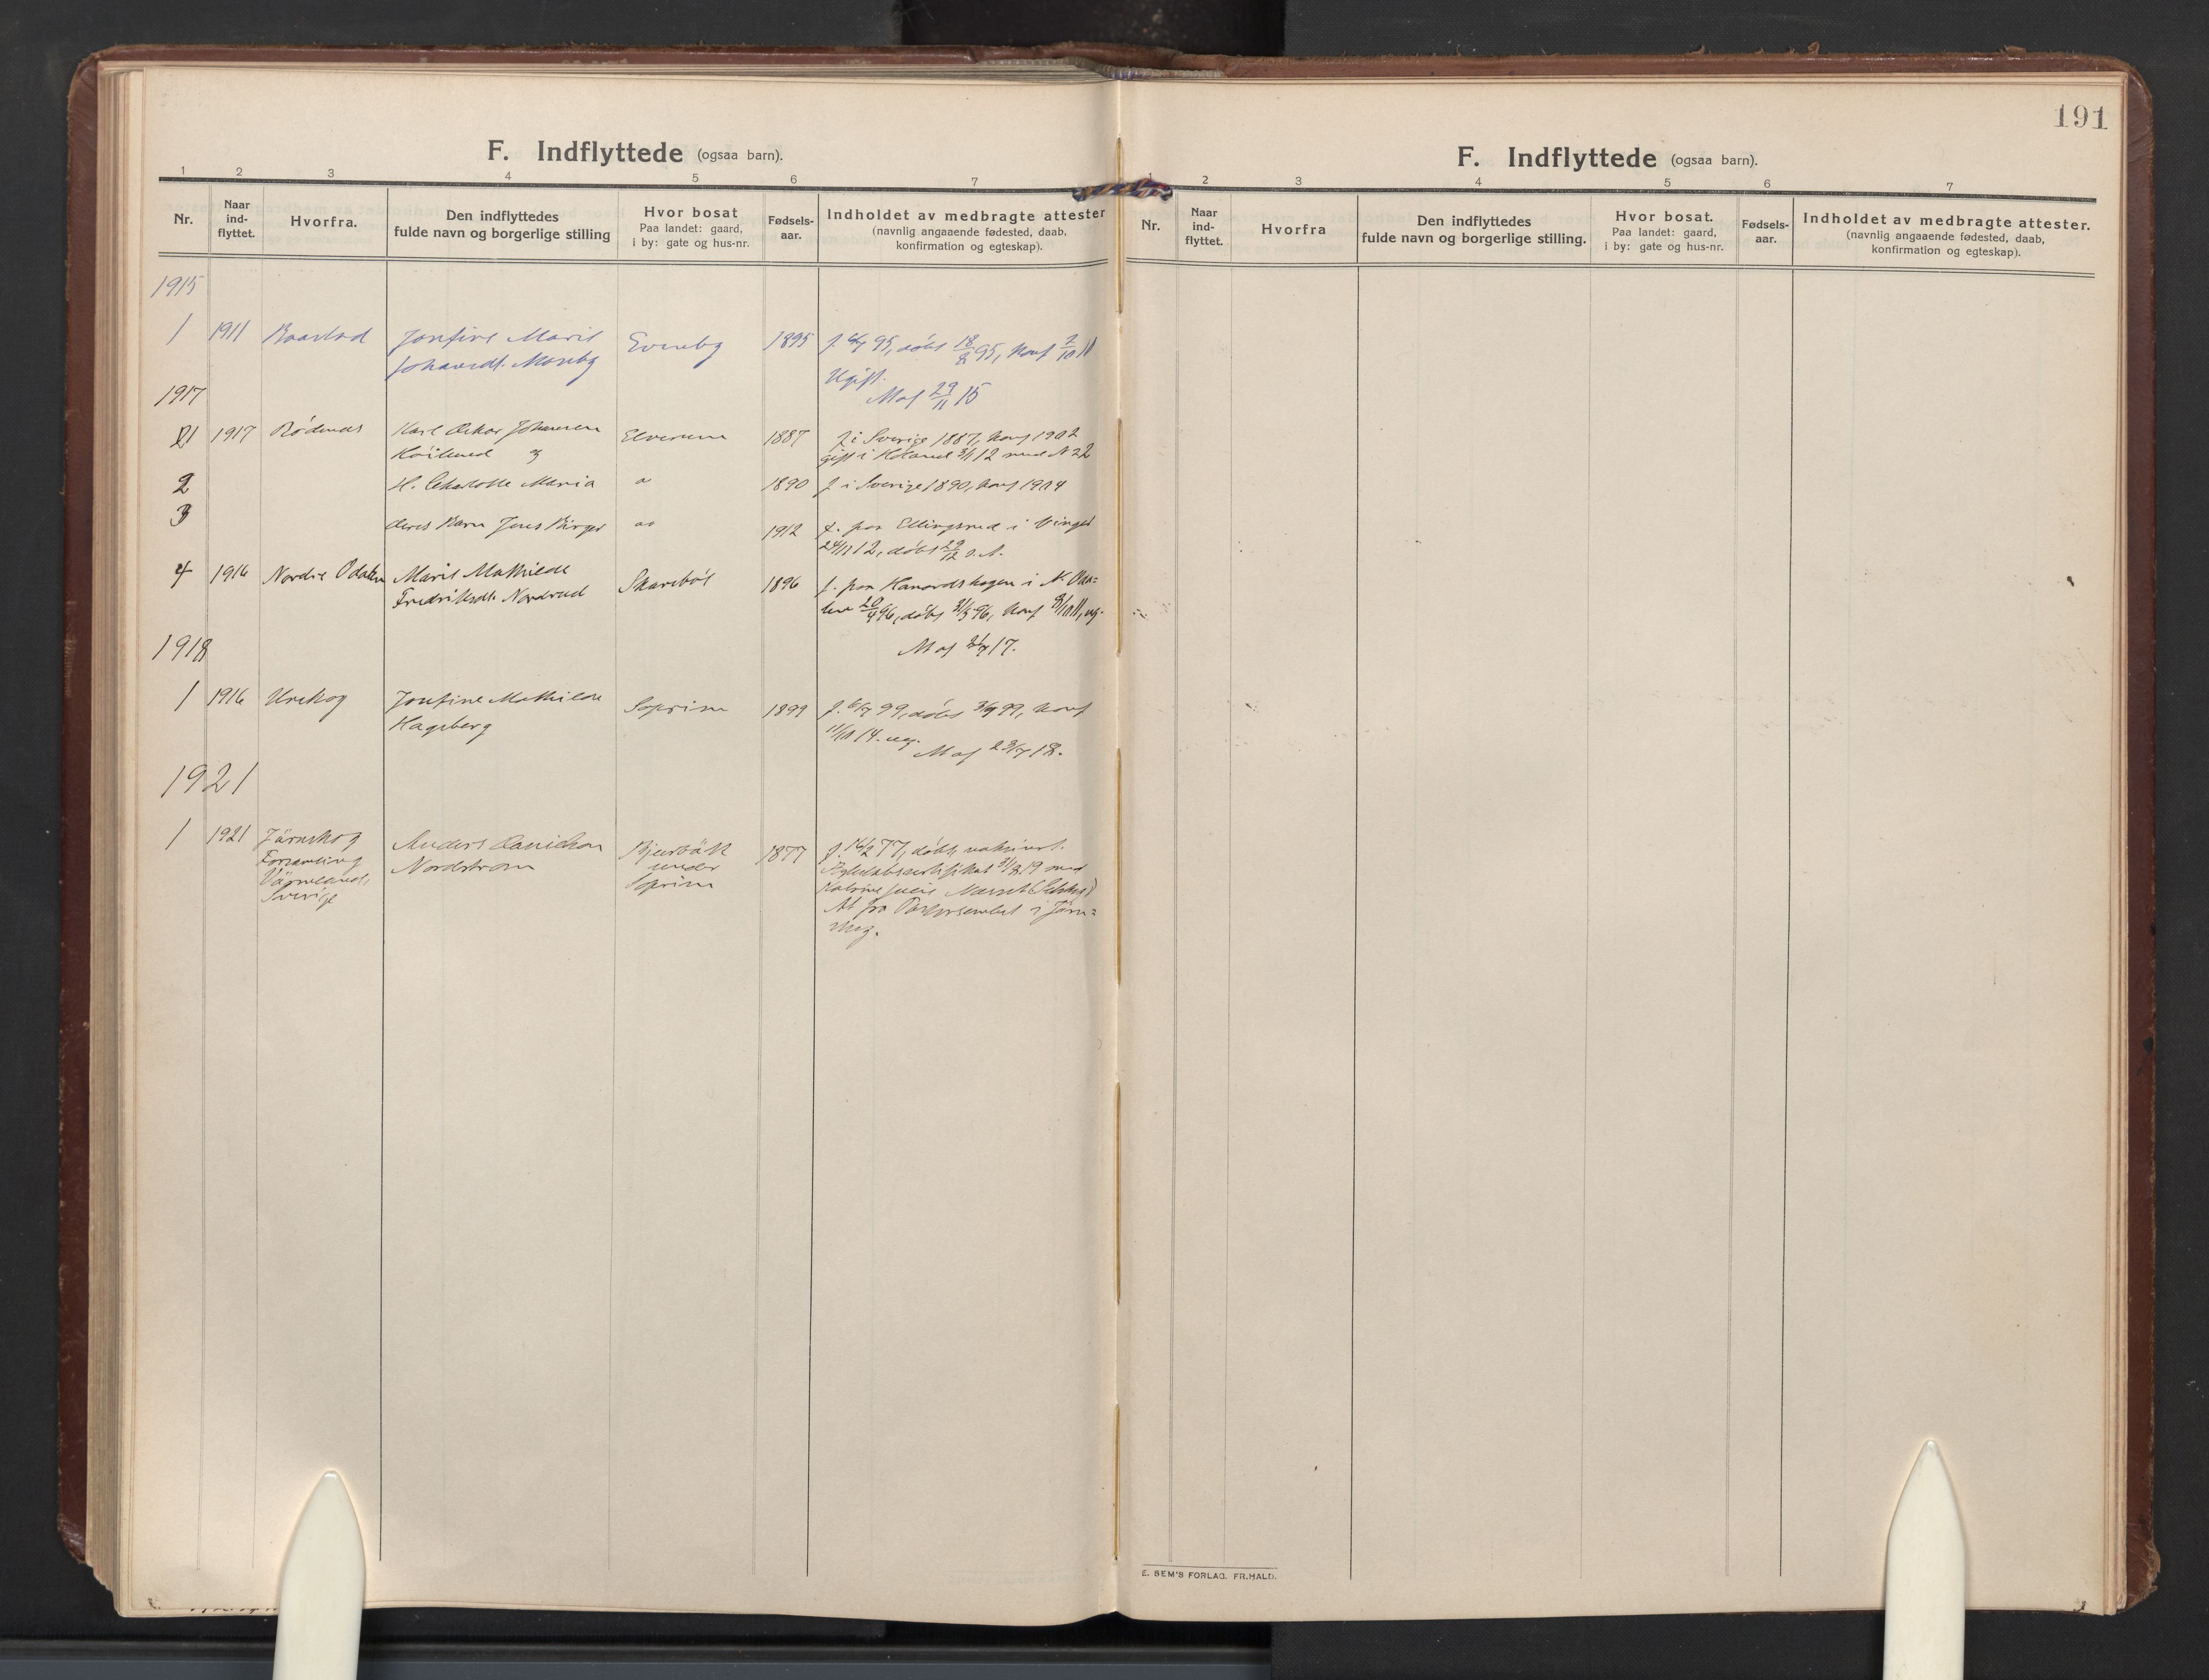 191
F. Indflyttede (ogsaa barn).
1 2 3 4 5 6 7
Nr. Naar ind-flyttet. Hvorfra. Den indflyttedes fulde navn og borgerlige stilling Hvor bosat Paa landet: gaard, i by: gate og hus-nr. Fødsels-aar. Indholdet av medbragte attester (navnlig angaaende fødested, daab, konfirmation og egteskap).
1915
1 1911 Baastad Josefine Marie Evenby 1895 f. 95, døbt 18/8 95, konf 2/10 11
Johansdt. Moseby
Ugift.
Mos 29/11 15
1917
1 1917 Rødenes Karl Oskar Johansen Elverum 1887 f i Sverige 1887, konf 1902
og gift i Høland 12 med N 22
2 H. Charlotte Maria " 1890 f i Sverige 1890, konf 1904
3 deres Barn Jens Birger " 1912 f. paa Ellingsrud i Vinger
24/11 12, døbt 29/12 s. A.
4 1916 Nordre Odalen Marie Mathilde Skarebøl 1896 f. paa i N. Oda=
Fredriksdt. Nordrud len 20/4 96, døbt 31/5 96, konf 11, ug.
Mos 17.
1918
1 1916 Urskog Josefine Mathilde Soprim 1899 f. 99, døbt 99, konf
Hagsberg 14. ug.
Mos 23/7 18.
1921
1 1921 Järnskog Anders Danielson Bjurbäk 1877 f. 77, døbt, vaksinert.
Forsamling Nordstrom under 19 med
Värmland, Soprim
Sverige At. fra i Järn=
skog.
F. Indflyttede (ogsaa barn).
1 2 3 4 5 6 7
Nr. Naar ind-flyttet. Hvorfra Den indflyttedes fulde navn og borgerlige stilling. Hvor bosat. Paa landet: gaard, i by: gate og hus-nr. Fødsels-aar. Indholdet av medbragte attester. (navnlig angaaende fødested, daab, konfirmation og egteskap).
E. SEM'S FORLAG. FR.HALD.